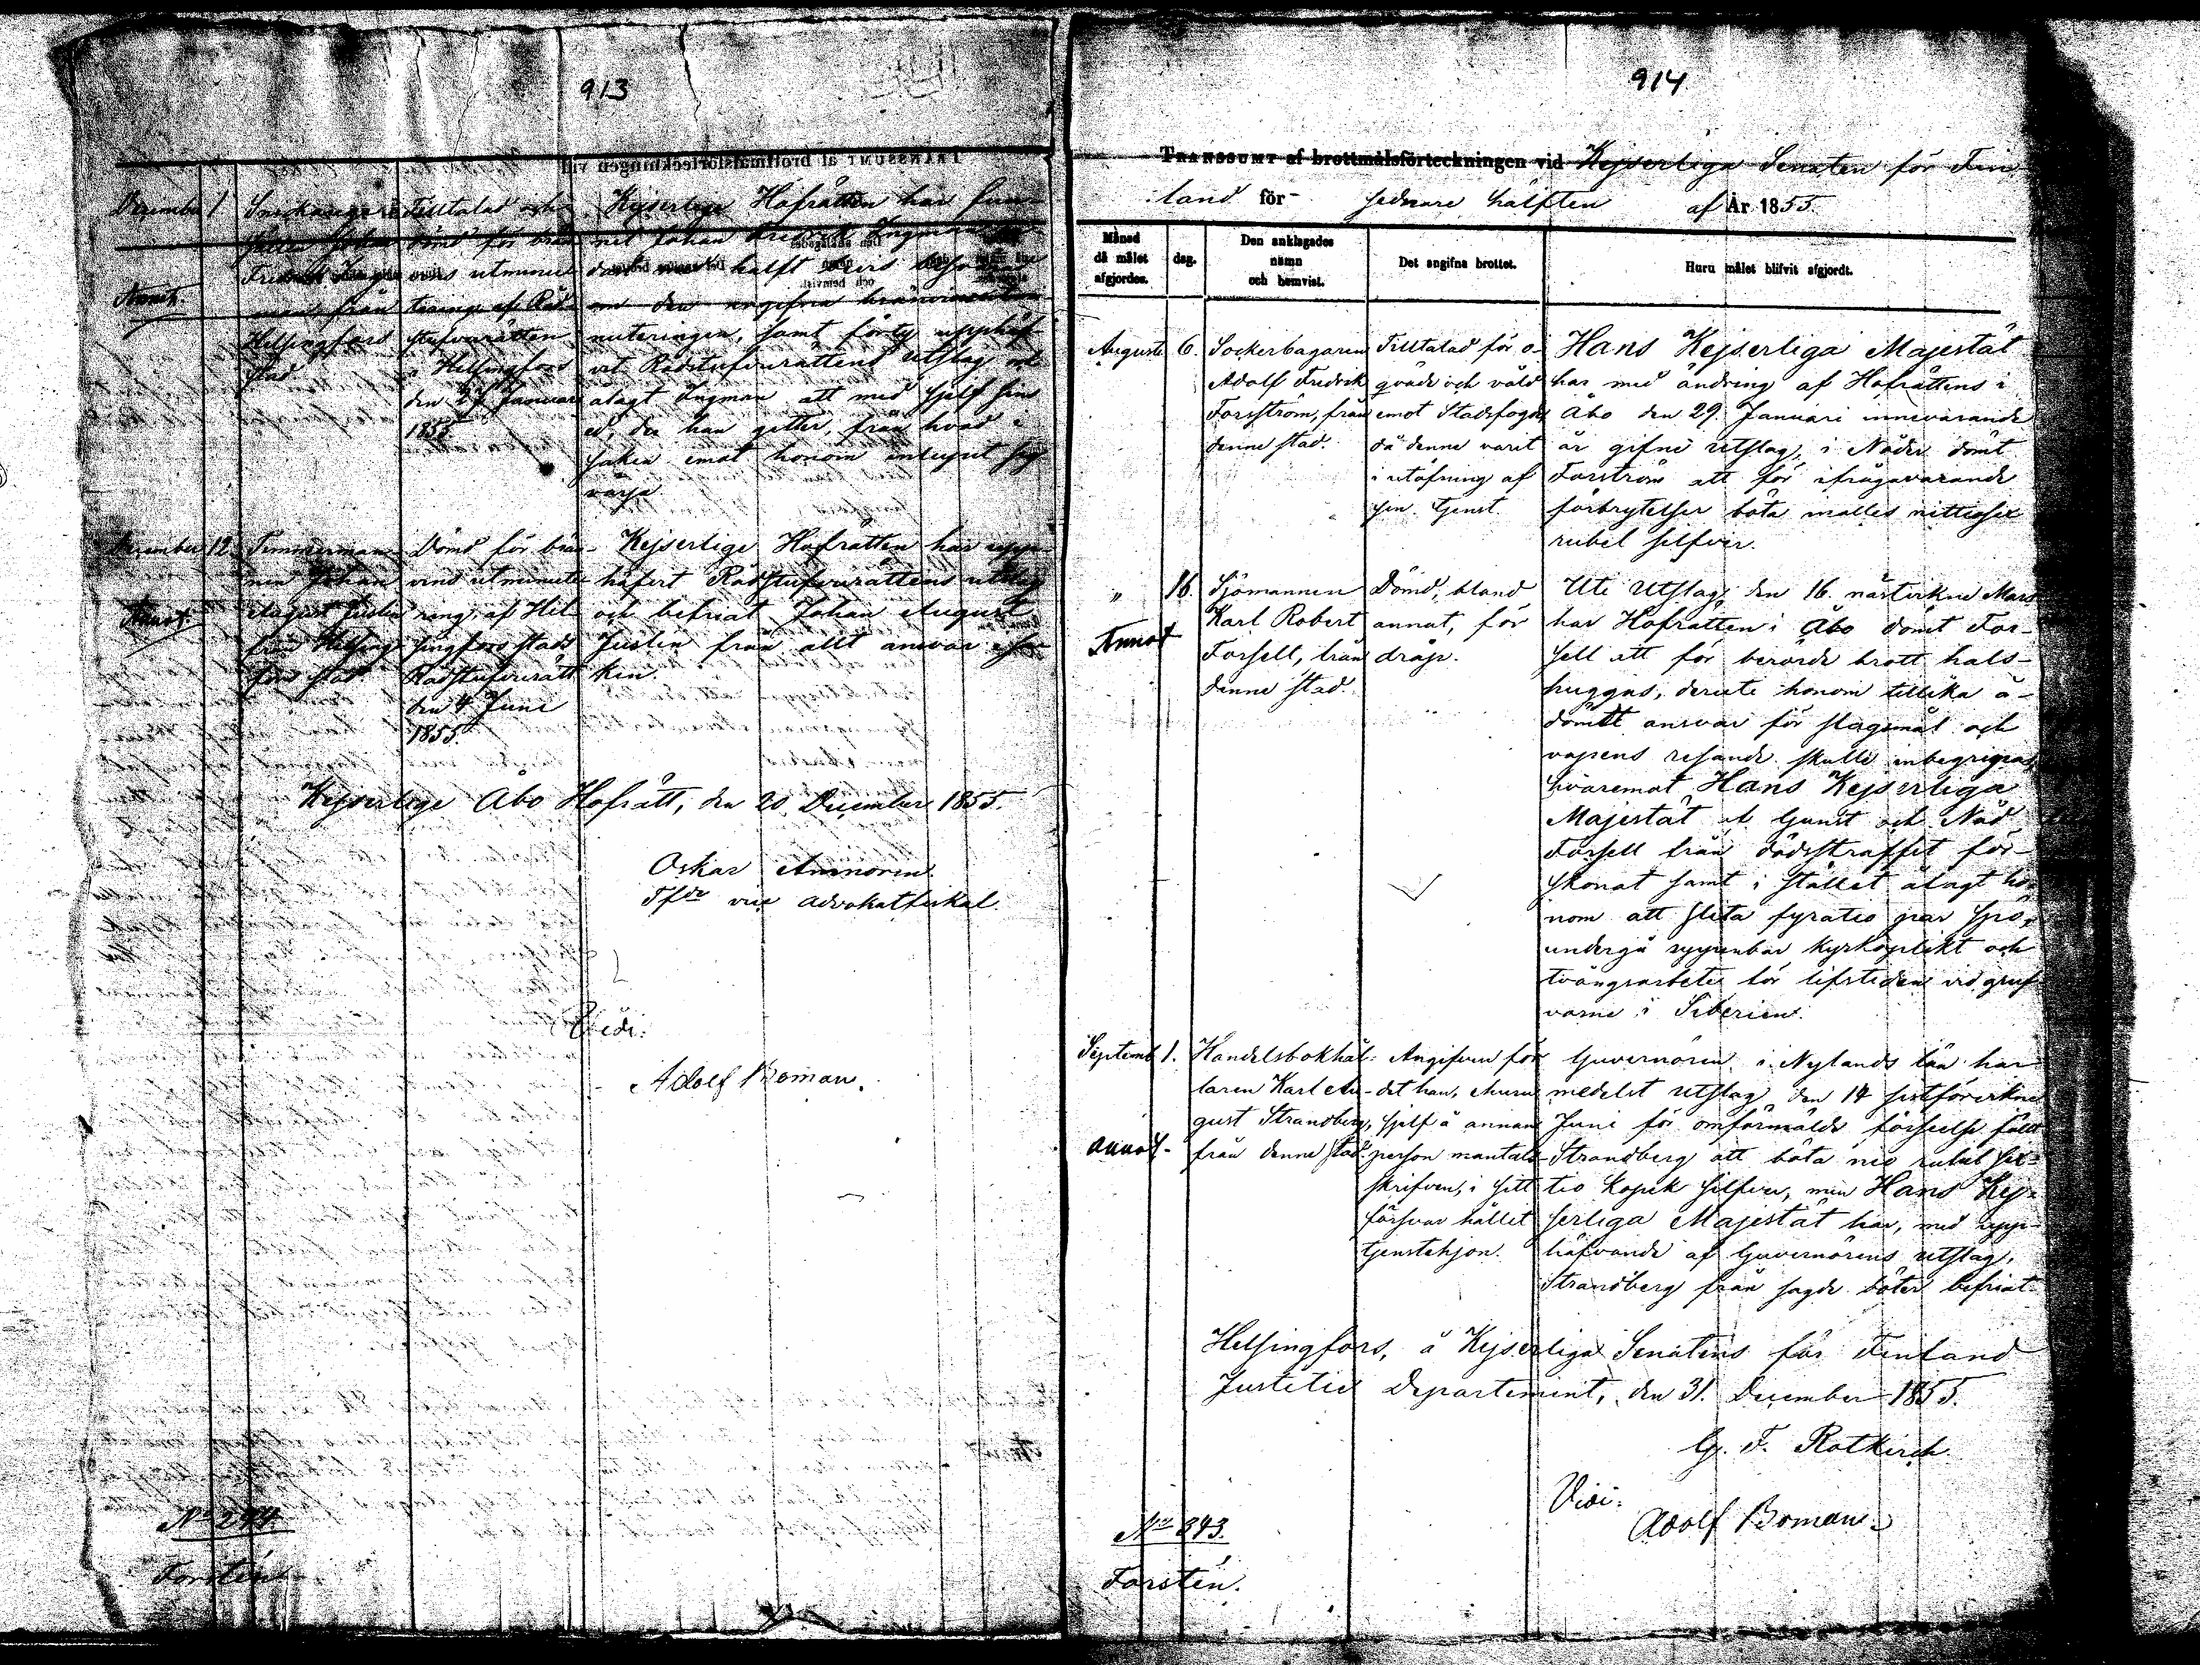 913
December 1
Annot.
Tilltalad och
dömd för brän-
vins utminute-
tering af Råd-
stufvurätten
i Helsingfors
den
Januari
1855.
Fredrik Ingman
man från
Helsingfors
stad
Kejserliga Hofrätten har fun-
nit Johan Fredrik Ingman
halft bevis
om den angifna bränvinsut-
minuteringen, samt förty upphäf-
vit Rådstufvurättens utslag och
ålagt Ingman att med sjelf sin
ed, der han gitter, från hvad i
saken emot honom anlupit sig
värja.
December 12
Annot.
Timmerman-
nen Johan
August Juslin
från Helsing-
fors stad
Dömd för brän-
vins utminute-
ring, af Hel-
singfors stads
Rådstufvurätt
den 4 Juni
1855.
Kejserliga Hofrätten har upp-
häfvit Rådstufvurättens utslag
och befriat Johan August
Juslin från allt ansvar i sa-
ken.
Kejserliga Åbo Hofrätt, den 20 December 1855.
Oskar
Tfde vice advokatfiskal.
Vidi:
Adolf Boman.
No 244.
Forstén.
914
TRANSSUMT af brottmålsförteckningen vid Kejserliga Senaten för Fin-
land för sednare hälften af År 1855.
Månad
då målet
afgjordes.
dag.
Den anklagades
namn
och hemvist.
Det angifna brottet.
Huru målet blifvit afgjordt.
Augusti 6.
Sockerbagaren
Adolf Fredrik
Forsström, från
denne stad.
Tilltalad för o-
qväde och våld
emot Stadsfogde,
då denne varit
i utöfning af
sin tjenst.
Hans Kejserliga Majestät
har med ändring af Hofrättens i
Åbo den 29 Januari innevarande
år gifne utslag, i Nåder dömt
Forström att för ifrågavarande
förbrytelser böta malles nittiosex
rubel silfver.
„ 16.
Annot
Sjömannen
Karl Robert
Forsell, från
denne stad.
Dömd, bland
annat, för
dråp.
Uti Utslag den 16. nästvikne Mars
har Hofrätten i Åbo dömt For-
sell att för berörde brott hals-
huggas, deruti honom tillika å-
dömdt ansvar för slagsmål och
vapens resande skulle inbegripas,
hvaremot Hans Kejserliga
Majestät af Gunst och Nåd
Forsell från dödsstraffet för-
skonat samt i stället ålagt ho-
nom att slita fyratio par spö,
undergå uppenbar kyrkoplikt och
tvångsarbete för lifstiden vid gruf-
vorne i Siberien.
Septemb. 1.
annot.
Handelsbokhål-
laren Karl Au-
gust Strandberg,
från denne stad.
Angifven för
det han, ehuru
sjelf å annan
person mantals-
skrifven, i sitt
försvar hållet
tjenstehjon.
Guvernören i Nylands län har
medelst utslag den 14 sistförvikne
Juni för omförmälde förseelse fällt
Strandberg att böta nio rubel sex-
tio kopek silfver, men Hans Kej-
serliga Majestät har, med upp-
häfvande af Guvernörens utslag,
Strandberg från sagde böter befriat.
Helsingfors, å Kejserliga Senatens för Finland
Justitie Departement, den 31. December 1855.
G. F. Rotkirch.
Vidi:
Adolf Boman.
No 243.
Forstén.